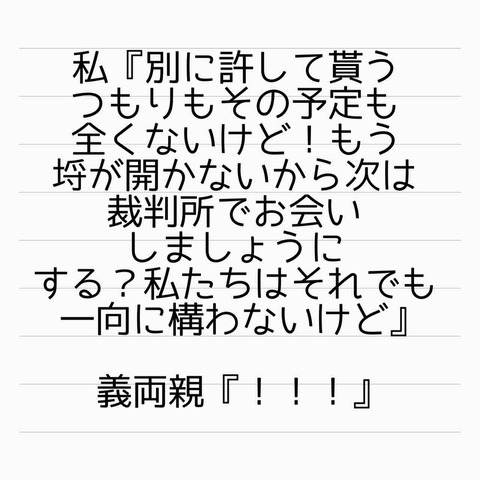 私『別に許して貰う
つもりもその予定も
全くないけど！もう
埒が開かないから次は
裁判所でお会い
しましょうに
する？私たちはそれでも
一向に構わないけど』
義両親『！！！』